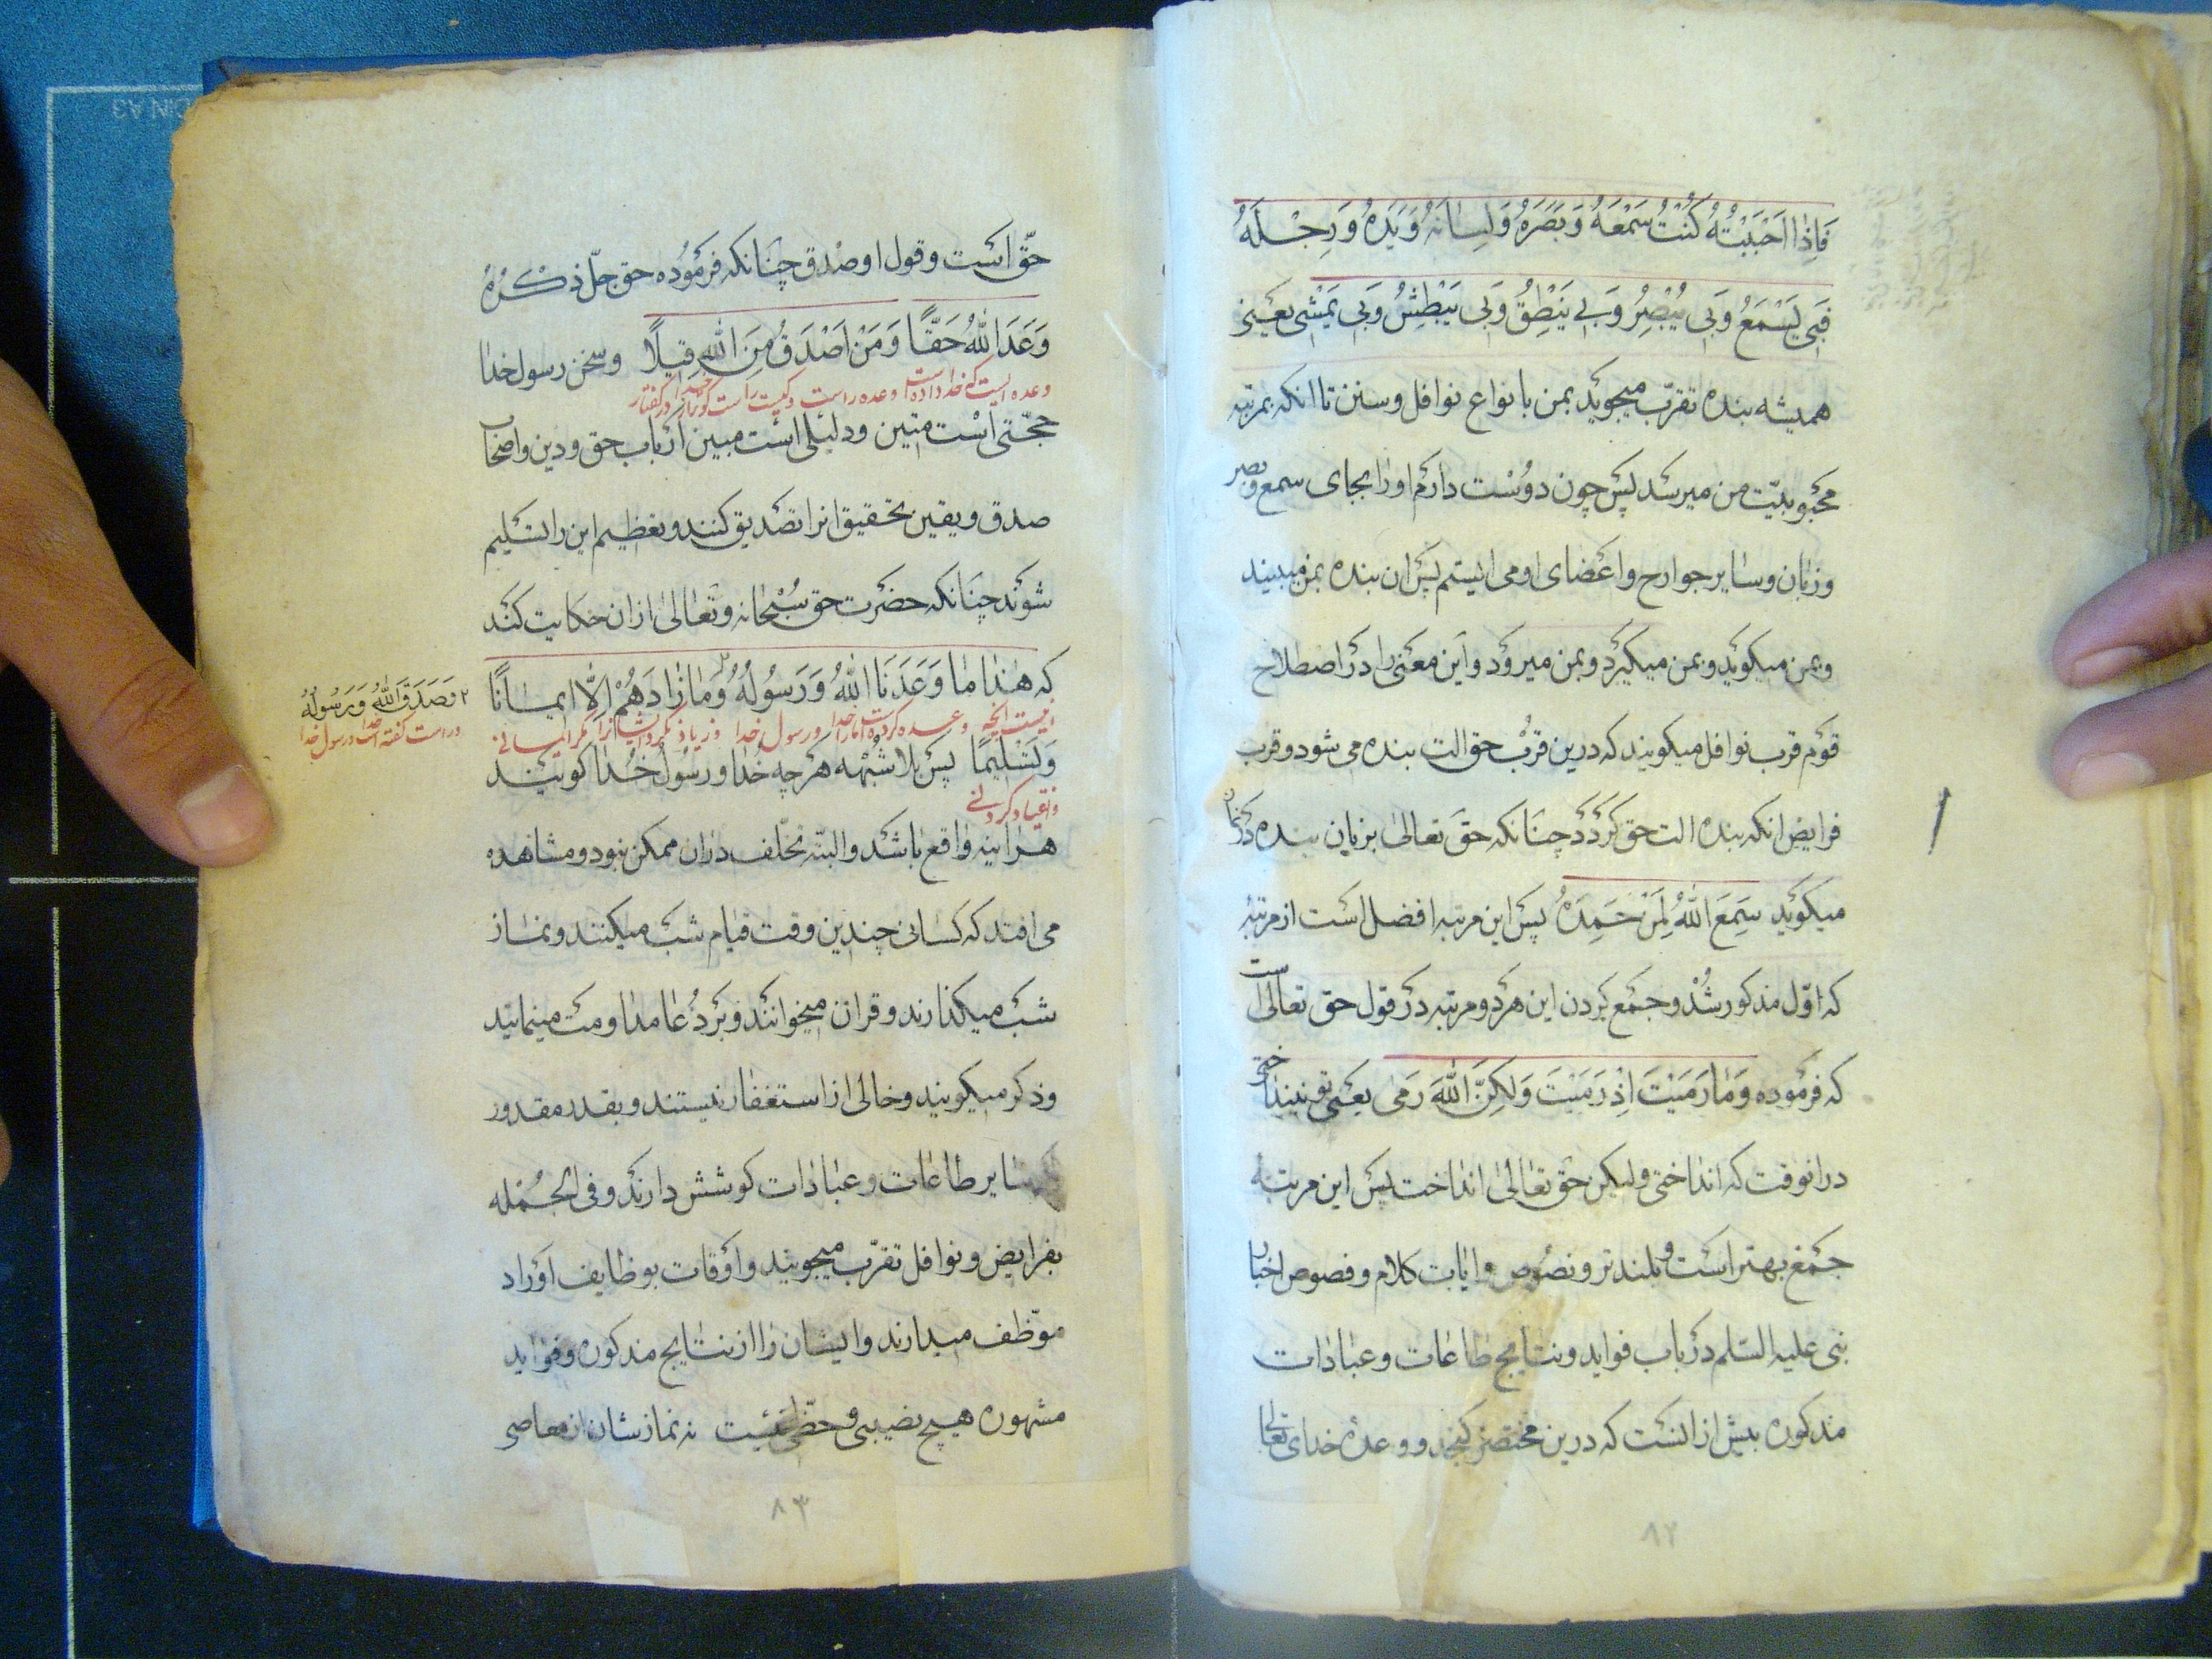 فَاِذٰا اَحْبَبْتُهُ كُنْتُ سَمْعَهُ وَبَصَرَهُ وَلِسٰانَهُ وَيَدَهُ وَرِجْلَهُ
فَبِي يَسْمَعُ وَبِي يُبْصِرُ وَبِي يَنْطِقُ وَبِي يَبْطِشُ وَبِي يَمْشِي يعنى
هميشه بنده تقرّب ميجويد بمن بانواع نوافل وسنن تا انكه بمرتبه
محبوبيّت من ميرسد پس چون دوست دارم او را بجاى سمع وبصر
وزبان وساير جوارح واعضاى او مى ايستم پس ان بنده بمن ميبيند
وبمن ميكويد وبمن ميكيرد وبمن ميرود واين معنى را در اصطلاح
قوم قرب نوافل ميكويند كه درين قرب حق الت بنده مى شود وقرب
فرايض انكه بنده الت حق كردد چنانكه حق تعالى بزبان بنده در نماز
ميكويد سَمِعَ اللهُ لِمَنْ حَمِدَهُ پس اين مرتبه افضل است از مرتبۀ
كه اوّل مذكور شد وجمع كردن اين هر دو مرتبه در قول حق تعالى است
كه فرموده وَمٰا رَمَيْتَ اِذْ رَمَيْتَ وَلٰكِنَّ اللهَ رَمىٰ يعنى تو نينداختى
در انوقت كه انداختى وليكن حق تعالى انداخت پس اين مرتبۀ
جمع بهتر است وبلندتر ونصوص وايات كلام وفصوص اخبار
نبى عليه السّلم در باب فوايد ونتايج طاعات وعبادات
مذكوره بيش از انست كه درين مختصر كنجد ووعدۀ خداى تعالى
۸۲
حقّ است وقول او صدق چنانكه فرموده حق جلّ ذكره
وَعَدَ اللهُ حَقّاً وَمَنْ اَصْدَقُ مِنَ اللهِ قِيلًا وسخن رسول خدا
وعده ايست كه خدا داده است وعده راست وكيست راست كوتر از خدا در كفتار
حجّتى است متين ودليلى است مبين ارباب حق ودين واصحاب
صدق ويقين بتحقيق انرا تصديق كنند وبتعظيم اين را تسليم
شوند چنانكه حضرت حق سبحانه وتعالى از ان حكايت كند
كه هٰذٰا مٰا وَعَدَنَا اللهُ وَرَسُولُهُ وَمٰا زٰادَهُمْ اِلّٰا ايمٰانًا
۲ وَصَدَقَ اللهُ وَرَسُولُهُ
وراست كفته است خدا ورسول خدا
اينست انچه وعده كرده است ما را خدا ورسول خدا وزياد نكرد ايشانرا مكر ايمانى
وَتَسْليمًا پس بلا شبهه هر چه خدا ورسول خدا كويند
وانقياد كردنى
هراينه واقع باشد والبتّه تخلّف در ان ممكن نبود ومشاهده
مى افتد كه كسانى چندين وقت قيام شب ميكنند ونماز
شب ميكذارند وقران ميخوانند وبر دعا مداومت مينمايند
وذكر ميكويند وخالى از استغفار نيستند وبقدر مقدور
ساير طاعات وعبادات كوشش دارند وفى الجمله
بفرايض ونوافل تقرّب ميجويند واوقات بوظايف اوراد
موظّف ميدارند وايشان را از نتايج مذكوره وفوايد
مشهوره هيچ نصيبى وحظّى نيست نه نمازشان از معاصى
۸۳